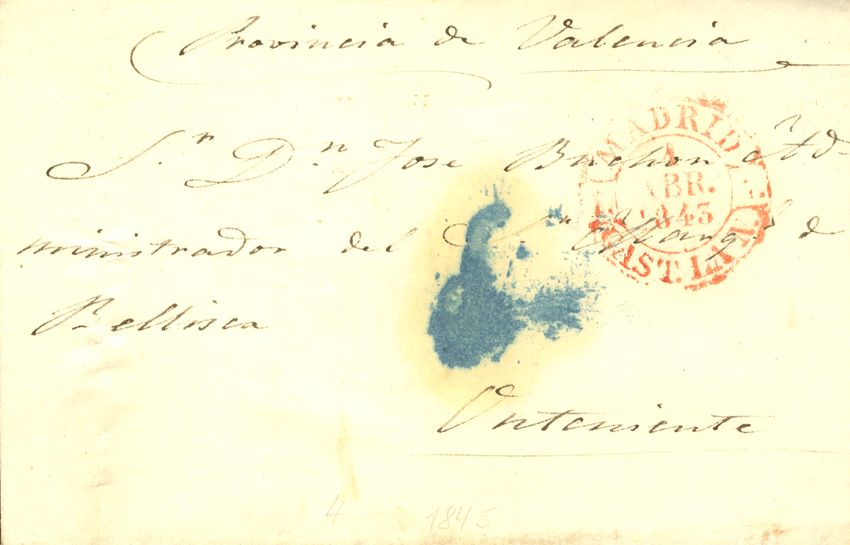 Provincia de Valencia
S.r D.n José Buchon Ad-
ministrador del S.r Marq.s de
Bellisca
Onteniente
MADRID
1
ABR.
1843
CAST. LA N.
4 1845